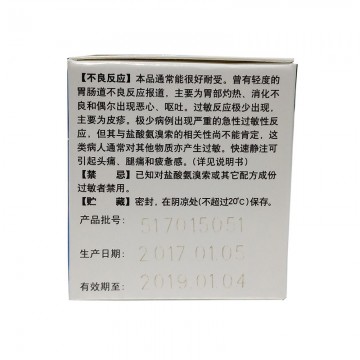 【不良反应】本品通常能很好耐受。曾有轻度的
胃肠道不良反应报道，主要为胃部灼热、消化不
良和偶尔出现恶心、呕吐。过敏反应极少出现，
主要为皮疹。极少病例出现严重的急性过敏性反
应，但其与盐酸氨溴索的相关性尚不能肯定，这
类病人通常对其他物质亦产生过敏。快速静注可
引起头痛、腿痛和疲惫感。（详见说明书）
【禁　忌】已知对盐酸氨溴索或其它配方成份
过敏者禁用。
【贮　藏】密封，在阴凉处(不超过20℃)保存。
产品批号： 517015051
生产日期： 2017.01.05
有效期至： 2019.01.04